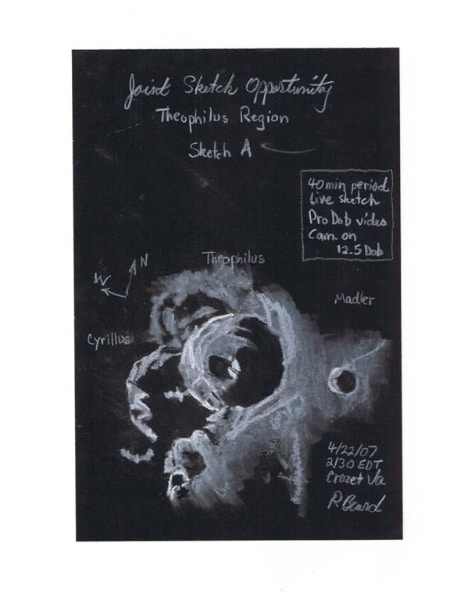 Joint Sketch Opportunity
Theophilus Region
Sketch A
40 min period
Live sketch
Pro Dob video
Cam. on
12.5 Dob
Theophilus
N
W
Madler
Cyrillus
4/22/07
2130 EDT
Crozet Va
R Beard